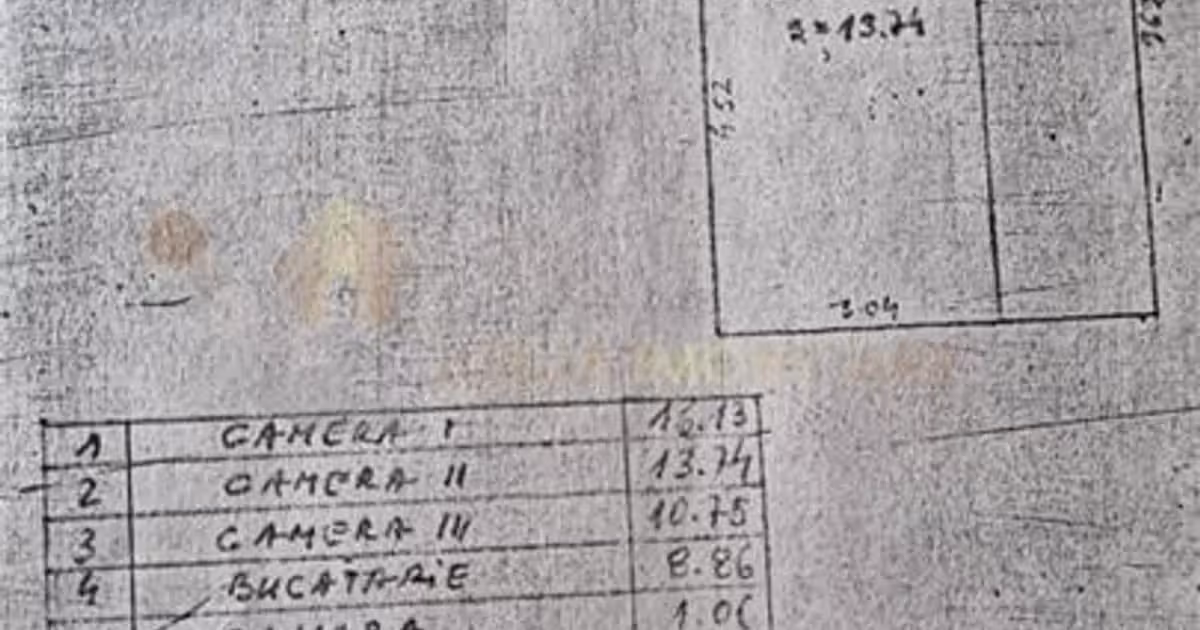 2=13.74
452
3.04
1 CAMERA I 16.13
2 CAMERA II 13.74
3 CAMERA III 10.75
4 BUCATARIE 8.86
CAMERA